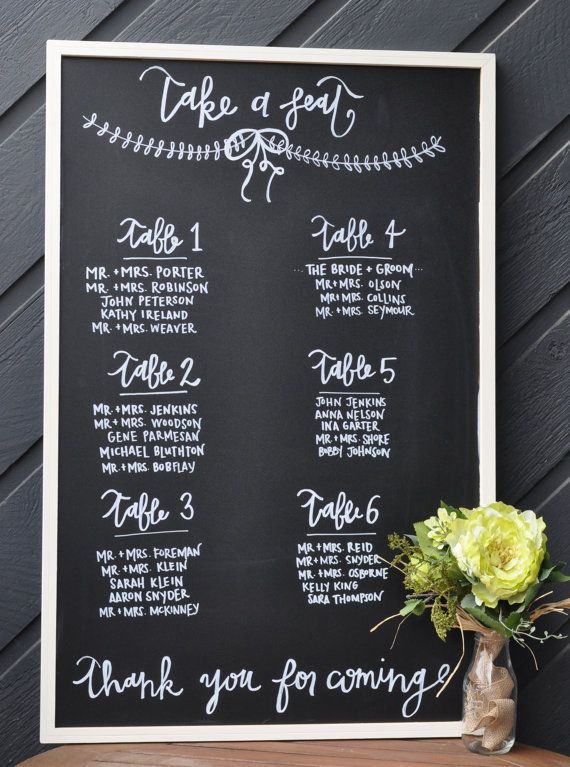 Take a seat
Table 1
MR. + MRS. PORTER
MR. + MRS. ROBINSON
JOHN PETERSON
KATHY IRELAND
MR. + MRS. WEAVER
Table 2
MR. + MRS. JENKINS
MR. + MRS. WOODSON
GENE PARMESAN
MICHAEL BLUTHTON
MR. + MRS. BOBFLAY
Table 3
MR. + MRS. FOREMAN
MR. + MRS. KLEIN
SARAH KLEIN
AARON SNYDER
MR. + MRS. MCKINNEY
Table 4
... THE BRIDE + GROOM ...
MR + MRS. OLSON
MR + MRS. COLLINS
MR. + MRS. SEYMOUR
Table 5
JOHN JENKINS
ANNA NELSON
INA GARTER
MR. + MRS. SHORE
BOBBY JOHNSON
Table 6
MR. + MRS. REID
MR. + MRS. SNYDER
MR. + MRS. OSBORNE
KELLY KING
SARA THOMPSON
Thank you for coming